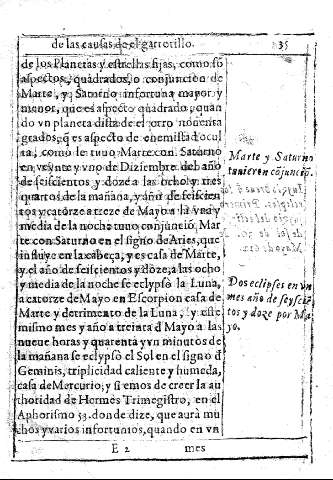 de las causas de el garrotillo. 35
de los Planetas y estrellas fijas, como sõ
aspectos, quadrados, o conjunciõn de
Marte, y Saturno infortuna mayor y
menor, que es aspecto quadrado, quan
do vn planeta dista de el otro nouenta
grados, q̃ es aspecto de enemistad ocul
ta, como le tuuo Marte con Saturno
en veynte y vno de Diziembre del año
de seiscientos y doze a las ocho y tres
quartos de la mañana, y año de seiscien
tos y catorze a treze de Mayo a la vna y
media de la noche tuuo conjunciõ Mar
te con Saturno en el signo de Aries, que
influye en la cabeça, y es casa de Marte,
y el año de seiscientos y doze, a las ocho
y media de la noche se eclypsò la Luna,
a catorze de Mayo en Escorpion casa de
Marte y detrimento de la Luna, y este
mismo mes y año a treinta đ Mayo a las
nueue horas y quarenta y vn minutos de
la mañana se eclypsò el Sol en el signo đ
Geminis, triplicidad caliente y humeda,
casa de Mercurio; y si emos de creer la au
thoridad de Hermes Trimegistro, en el
Aphorismo 53. donde dize, que aurà mu
chos y varios infortunios, quando en vn
E 2 mes
Marte y Saturno
tuuieron cõjunciõ.
Dos eclipses en vn
mes año de seyscié
tos y doze por Ma
yo.